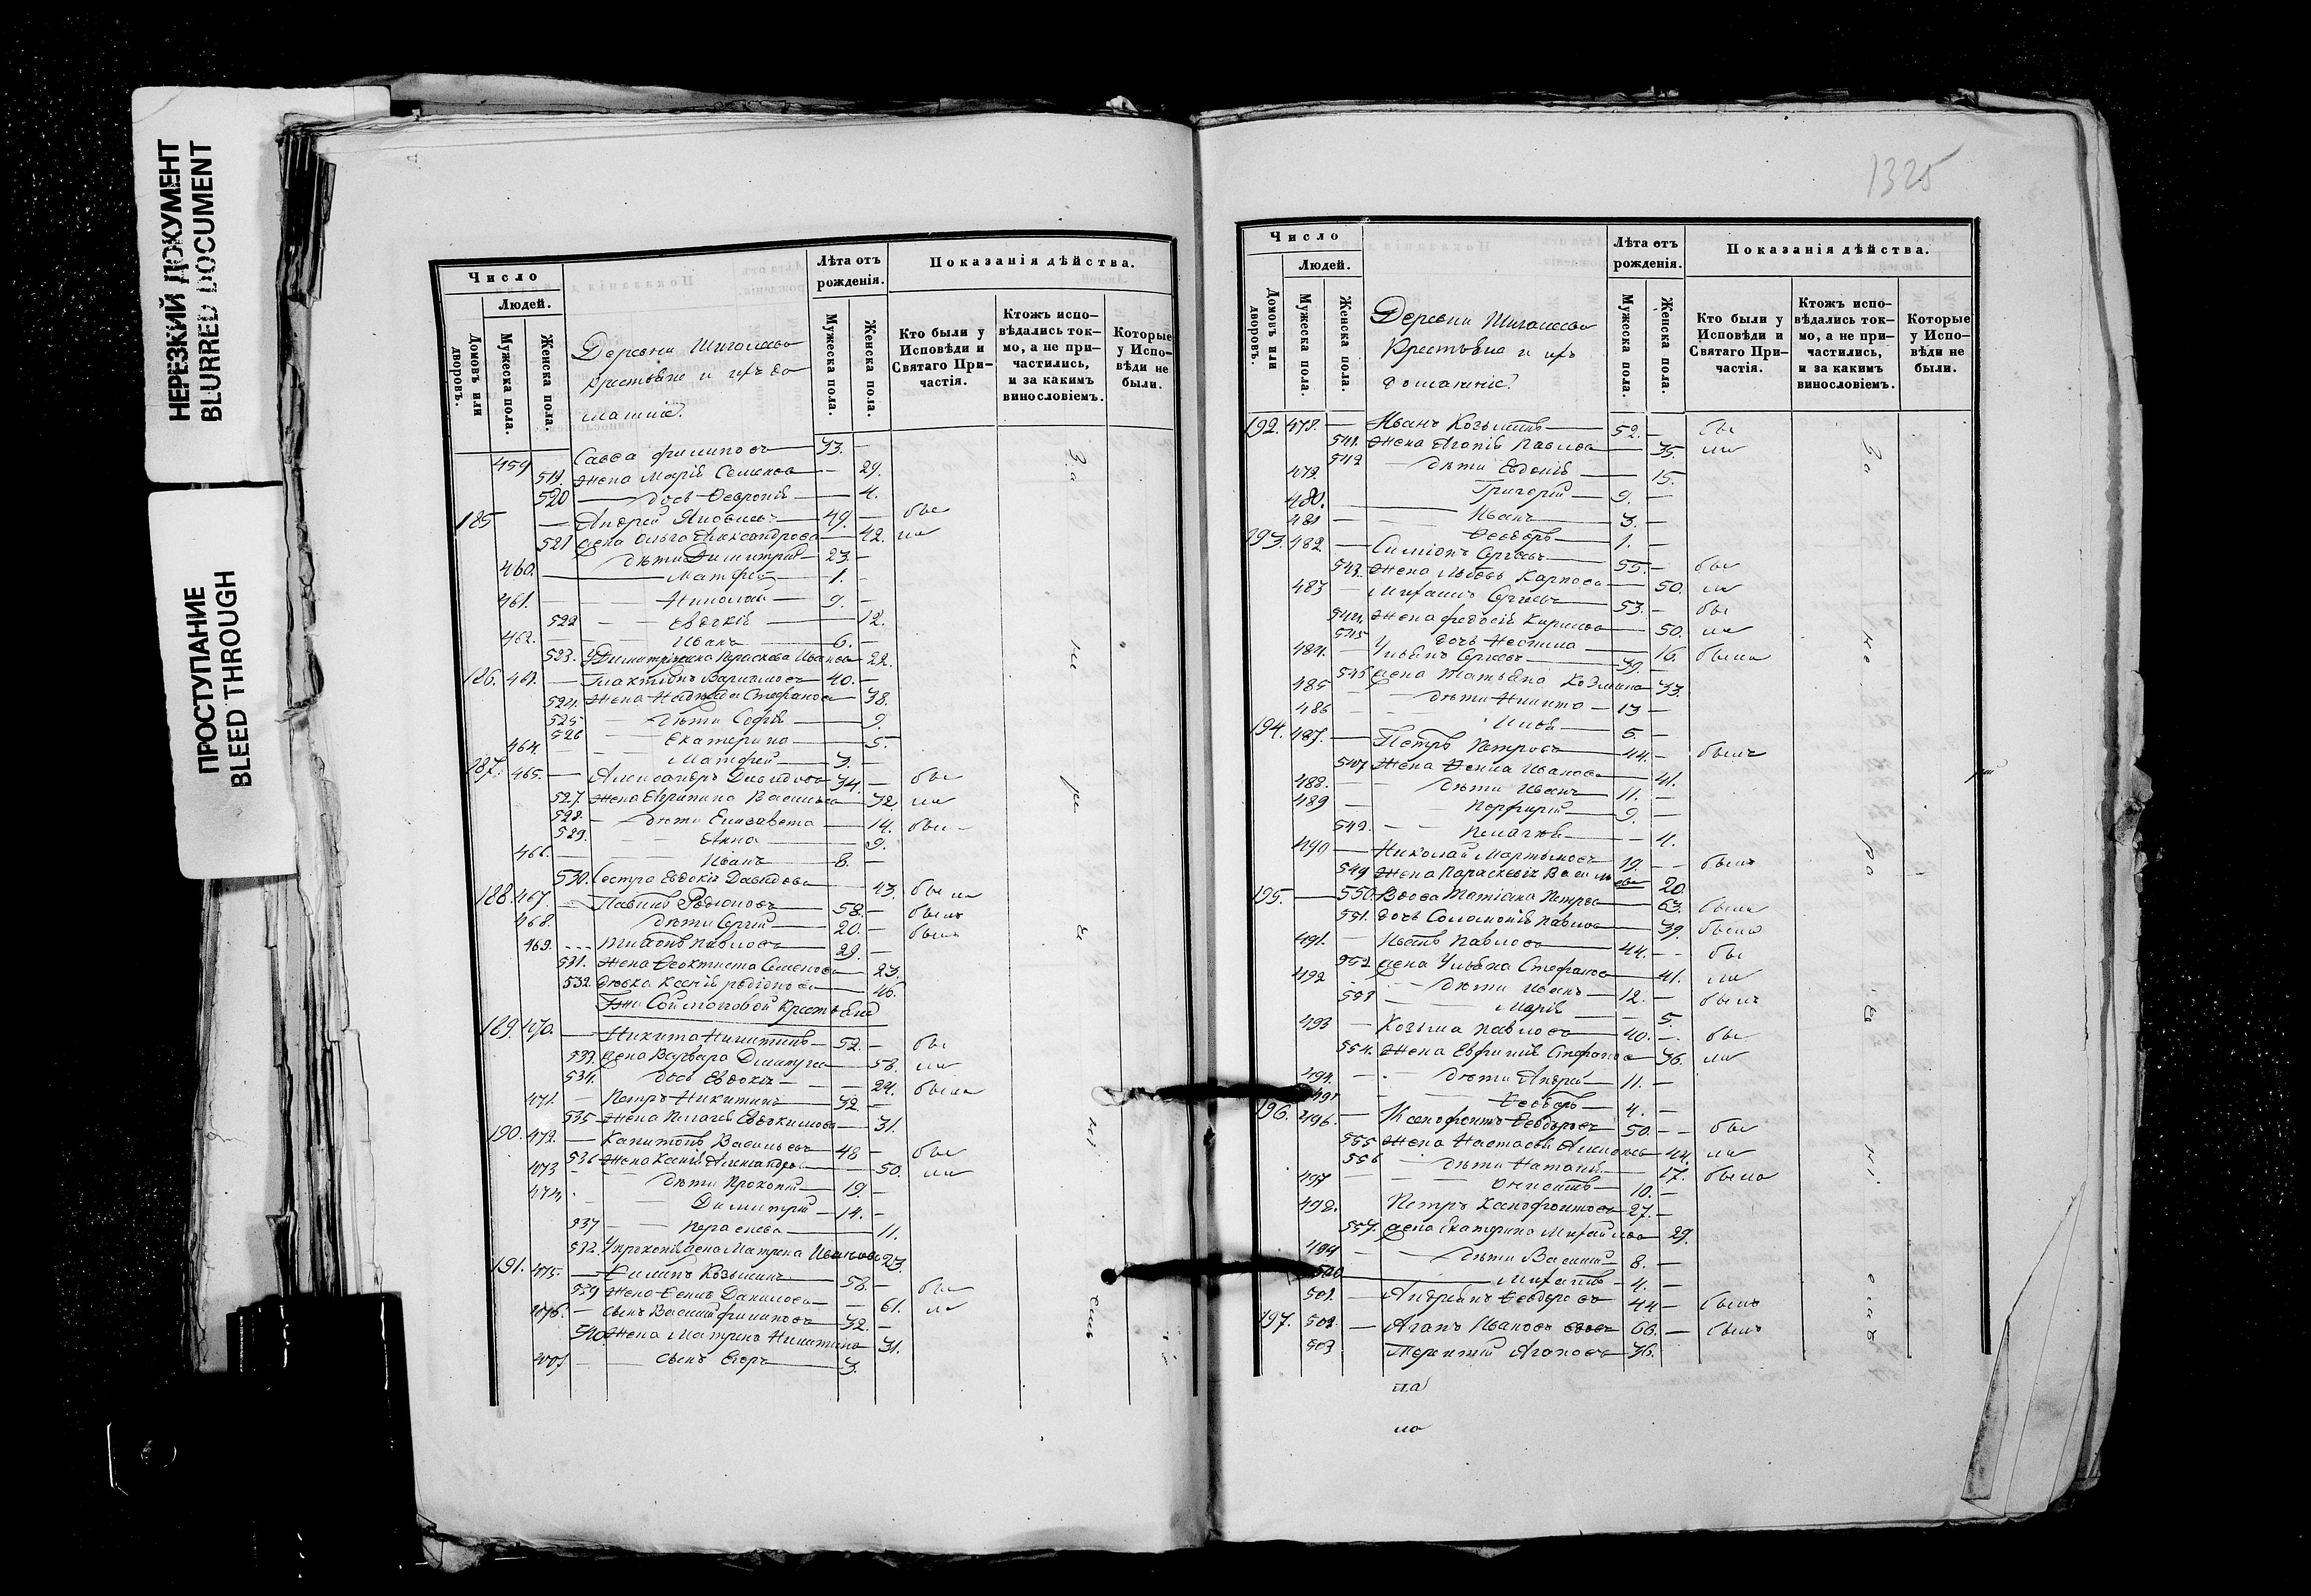 НЕРЕЗКИЙ ДОКУМЕНТ
BLURRED DOCUMENT
ПРОСТУПАНИЕ
BLEED THROUGH
Число
Людей.
Домовъ или дворовъ.
Мужеска пола.
Женска пола.
Деревни
крестьяне и ихъ до
машніе.
Лѣта отъ рожденія.
Мужеска пола.
Женска пола.
Показанія дѣйства.
Кто были у Исповѣди и Святаго Причастія.
Ктожъ исповѣдались токмо, а не причастились, и за какимъ винословіемъ.
Которые у Исповѣди не были.
459 Савва Филиповъ 33.
519. жена Марія Семенова 29.
520 дочь Февронія 4.
185 Андрей Яковлевъ 49. бы
521 жена Ольга Александрова 42. ли
460. дѣти Димитрій 23.
Матфей 1.
461. Николай 9.
522 Евдокія 12.
462. Иванъ 6.
523. У Димитрія жена Параскева Иванова 22.
186. 463. Варламовъ 40.
524. жена Надежда Стефанова 38.
525 дѣти Софія 9.
526 Екатерина 5.
464 Матфей 3.
187. 465. Александръ Давидовъ 34. бы
527. жена Агрипина Васильева 32. ли
528. дѣти Елисавета 14. был
529. Анна 9.
466. Иванъ 8.
530. сестра Евдокія Давыдова 43. была
188. 467. Павелъ Родіоновъ 58. былъ
468. дѣти Сергій 20. былъ
469. Павловъ 29.
531. жена Феоктиста Семенова 23.
532. дѣвка Ксенія Родіонова 46.
крестьяне
189. 470. Никита Никитинъ 52. бы
533. жена Варвара Дмитріева 58. ли
534. дочь Евдокія 24. была
471. Петръ Никитинъ 32.
535 жена Пелагея Евдокимова 31.
190. 472. Капитонъ Васильевъ 48 бы
536 жена Ксенія Александрова 50. ли
473 дѣти Прокопій 19.
474. Димитрій 14.
537 Параскева 11.
538. У Прокопія жена Матрена Иванова 23.
191. 475. Филипъ Козьминъ 58. бы
539 жена Ксенія Данилова 61. ли
476. сынъ Василій Филиповъ 32.
540 жена Матрена Никитина 31.
477 сынъ Егоръ 3.
1325
Число
Людей.
Домовъ или дворовъ.
Мужеска пола.
Женска пола.
Деревни
Крестьяне и ихъ
домашніе.
Лѣта отъ рожденія.
Мужеска пола.
Женска пола.
Показанія дѣйства.
Кто были у Исповѣди и Святаго Причастія.
Ктожъ исповѣдались токмо, а не причастились, и за какимъ винословіемъ.
Которые у Исповѣди не были.
192. 478. Иванъ Козьминъ 52. бы
541. жена Агапія Павлова 35. ли
542 дѣти Евдокія 15.
479. Григорій 9.
480. Иванъ 3.
481 Феодоръ 1.
193. 482. Симіонъ Сергѣевъ 55. бы
543. жена Любовь Карпова 50. ли
483 Михаилъ Сергѣевъ 53. бы
544. жена Федосія Кирилова 50. ли
545 дочь 16. была
484. Ульянъ Сергѣевъ 39.
546 жена Татьяна Козмина 33.
485 дѣти Никита 13
486 Илья 5.
194. 487. Петръ Петровъ 44. былъ
547 жена Ксенія Иванова 41.
488. дѣти Иванъ 11.
489 Порфирій 9.
548. Пелагея 4.
490 Николай Мартыновъ 19. былъ
549 жена Параскевія Васильева 20.
195. 550. Вдова Татіана Петрова 63. была
551. дочь Соломонія Павлова 39. была
491. Павловъ 44. бы
552 жена Ульяна Стефанова 41. ли
492 дѣти Иванъ 12. былъ
553 Марія 5.
493 Козьма Павловъ 40. бы
554. жена Евфимія Стефанова 36. ли
494. дѣти Андрей 11.
495 Феодоръ 4.
196. 496. Ксенофонтъ Феодоровъ 50. бы
555 жена Настасья 44. ли
556 дѣти Наталія 17. была
497 10.
498. Петръ Ксенофонтовъ 27.
557. жена Екатерина Михайлова 29.
499 дѣти Василій 8.
500 Михаилъ 4.
501. Андреянъ Феодоровъ 44 былъ
197. 502. Агапъ Ивановъ вдовъ 66. былъ
503 Терентій Агаповъ 36.